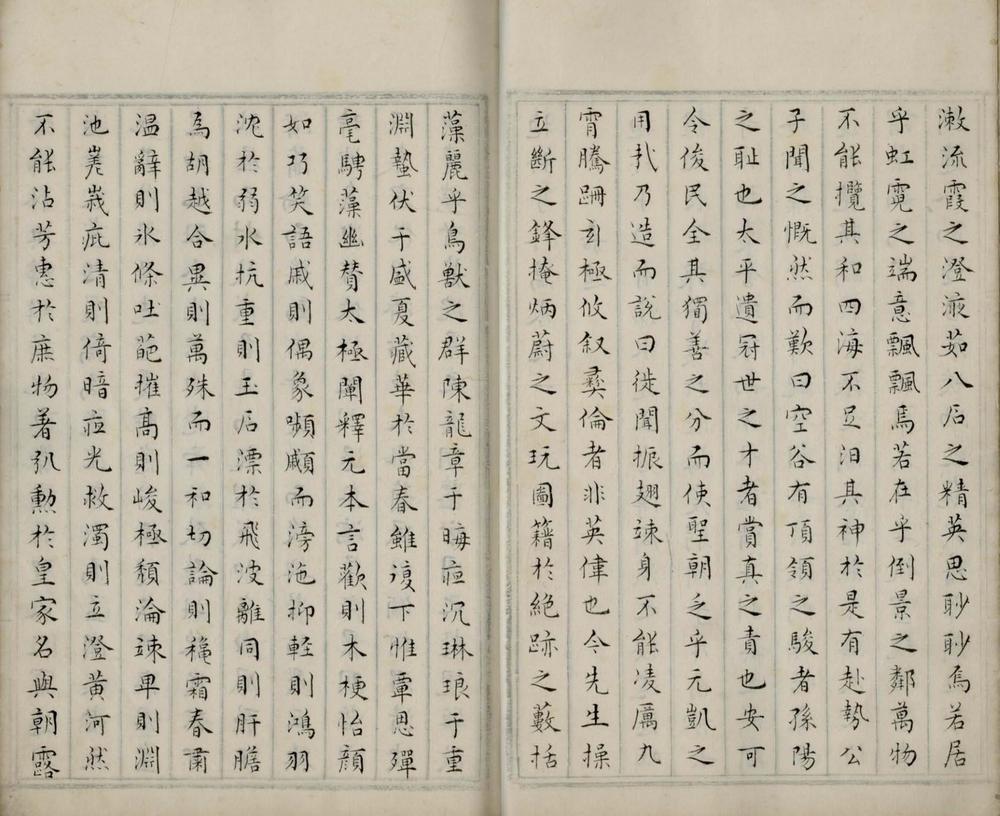 漱流霞之澄液茹八石之精英思眇眇焉若居
乎虹霓之端意飄飄焉若在乎倒景之鄰萬物
不能攪其和四海不足汩其神於是有赴勢公
子聞之慨然而歎曰空谷有項領之駿者孫陽
之恥也太平遺冠世之才者賞真之責也安可
令俊民全其獨善之分而使聖朝乏乎元凱之
用哉乃造而說曰徒聞振翅竦身不能凌厲九
霄騰跚玄極攸叙彝倫者非英偉也今先生操
立斷之鋒掩炳蔚之文玩圖籍於絕跡之藪括
藻麗乎鳥獸之群陳龍章于晦夜沉琳琅于重
淵蟄伏于盛夏藏華於當春雖復下惟覃思殫
毫騁藻幽贊太極闡釋元本言歡則木梗怡顏
如巧笑語戚則偶象嚬顣而滂沲抑輕則鴻羽
沈於弱水抗重則玉石漂於飛波離同則肝膽
為胡越合異則萬殊而一和切論則穐霜春肅
温辭則氷條吐葩摧高則峻極頹淪竦卑則淵
池嵳峩疵清則倚暗夜光救濁則立澄黄河然
不能沾芳恵於庶物著弘勳於皇家名與朝露